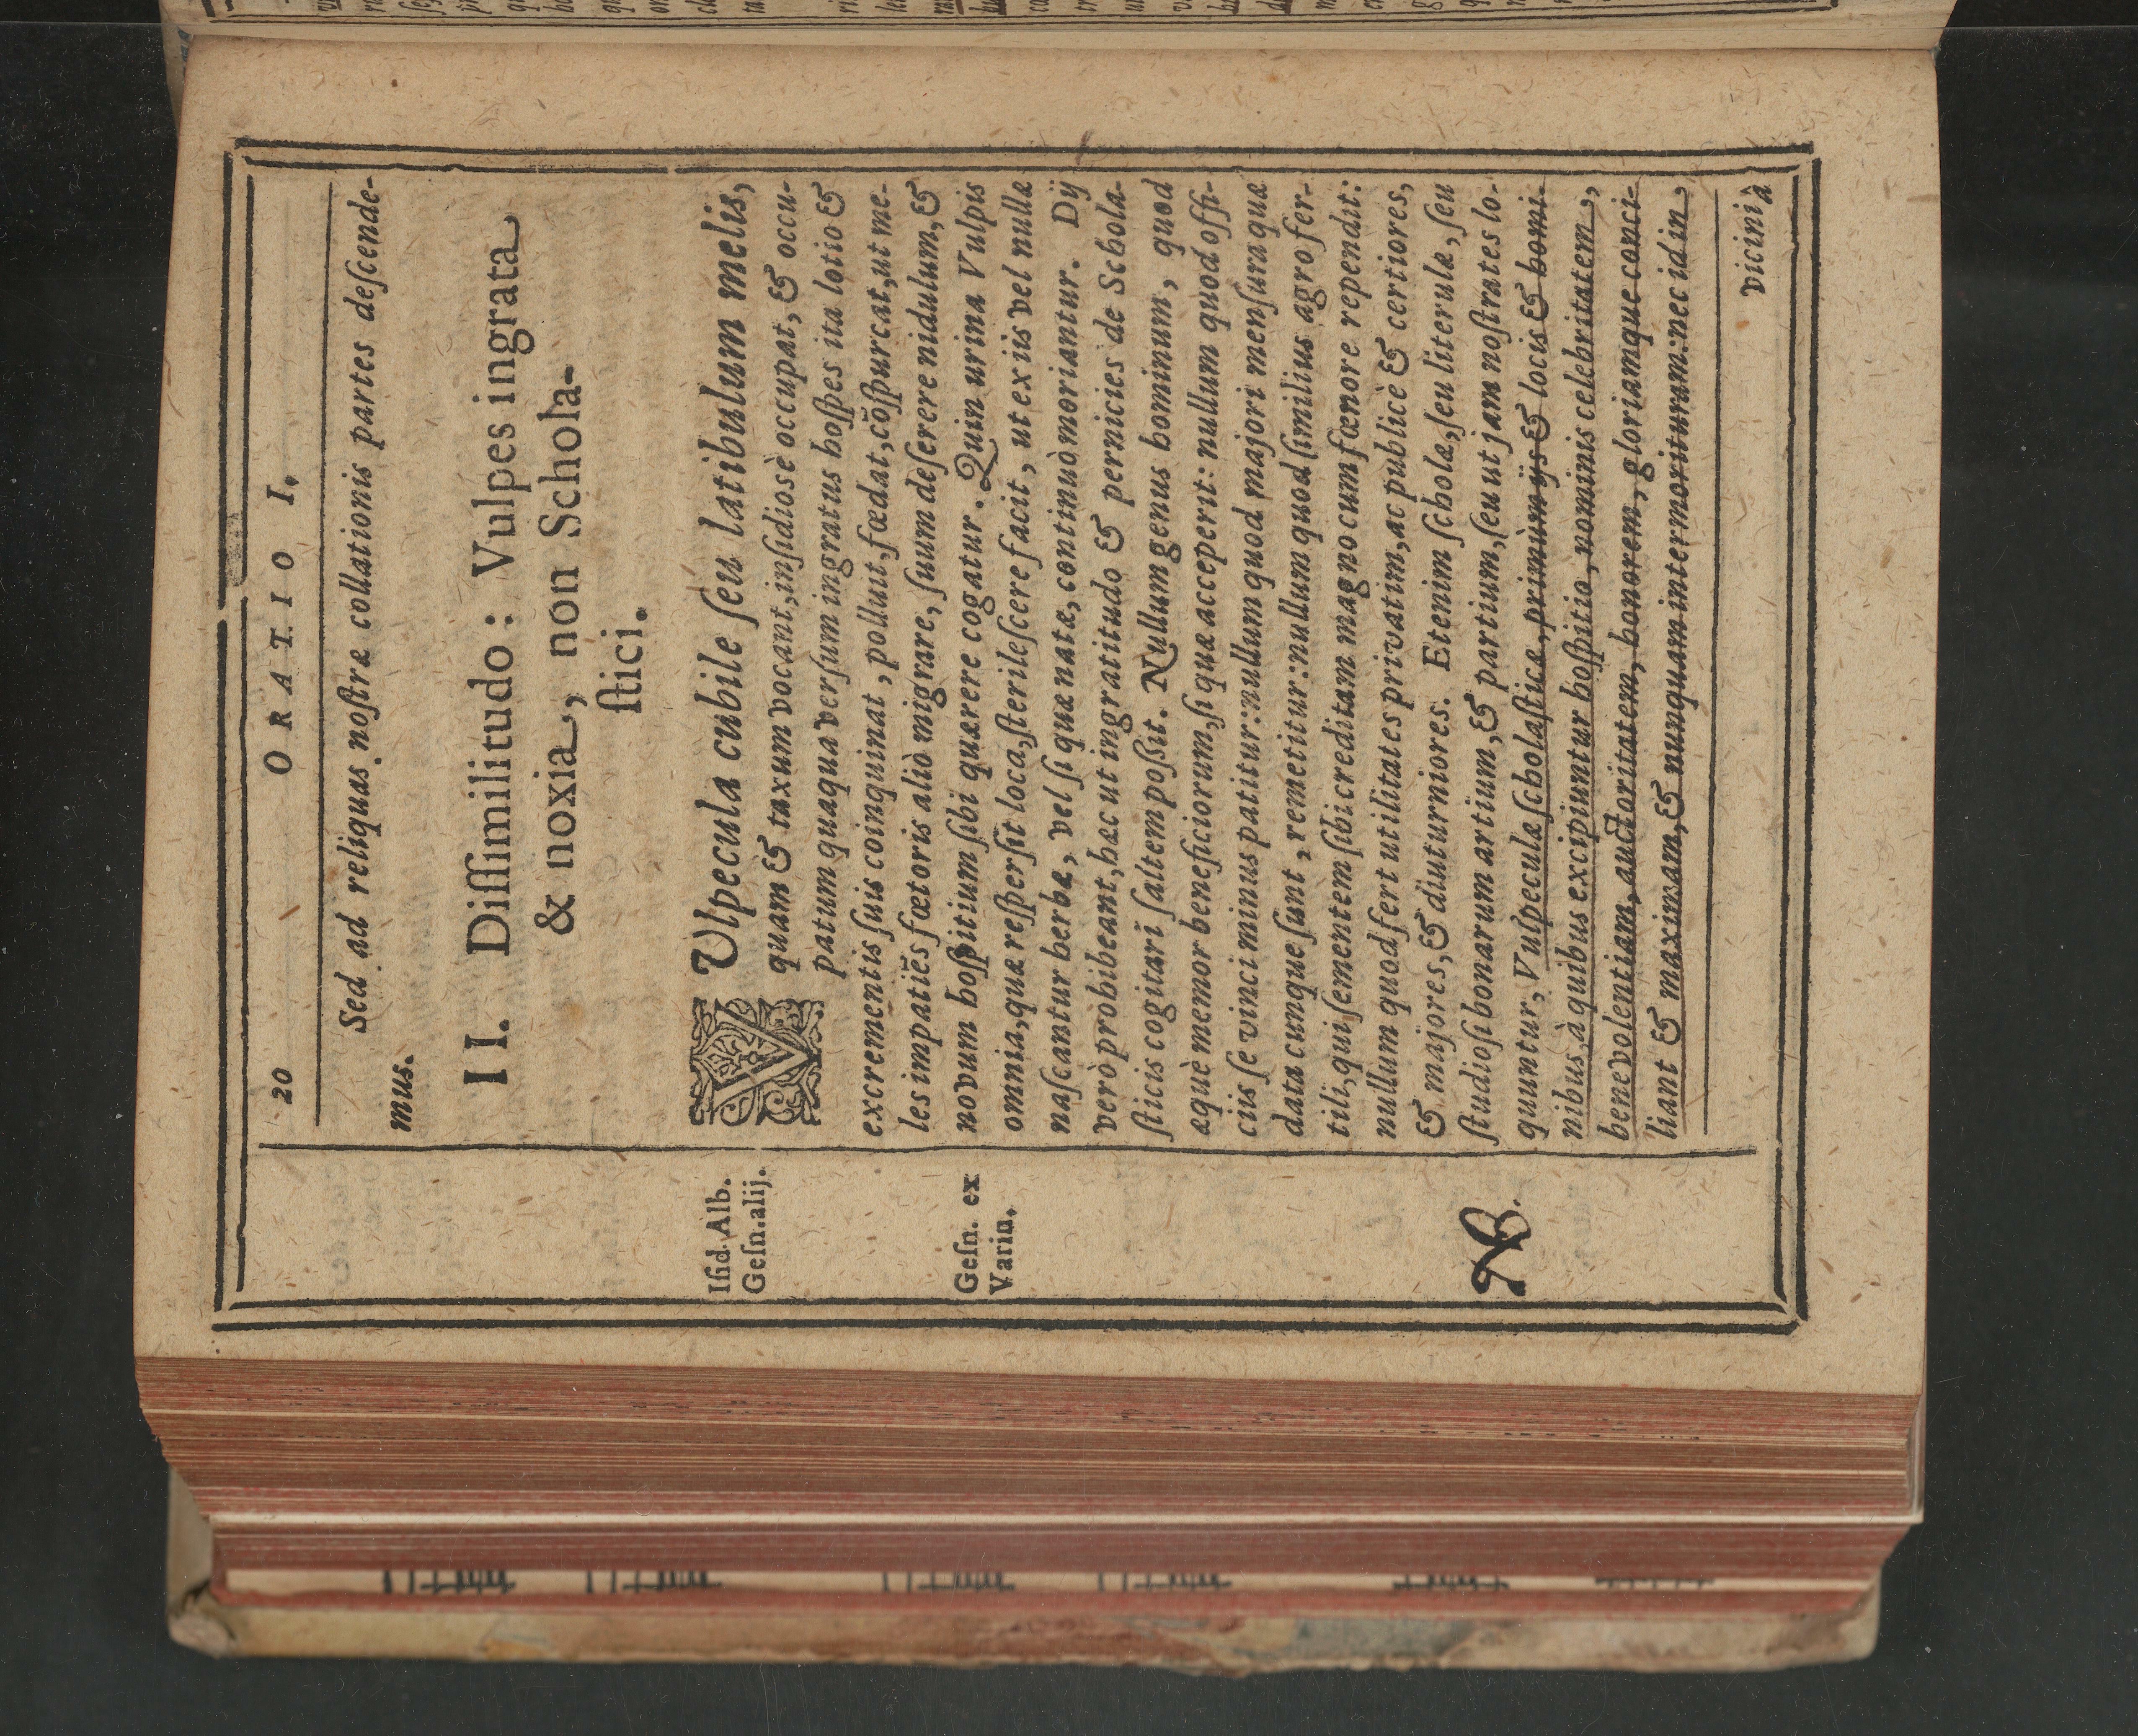 20 ORATIO I.
Sed ad reliquas nostræ collationis partes descende-
mus.
II. Dissimilitudo: Vulpes ingrata
& noxia, non Schola-
stici.
VUlpecula cubile seu latibulum melis,
quam & taxum vocant, insidiosè occupat, & occu-
patum quaqua versum ingratus hospes ita lotio &
excrementis suis coinquinat, polluit, fœdat, cõspurcat, ut me-
les impatiẽs fœtoris aliò migrare, suum deserere nidulum, &
novum hospitium sibi quærere cogatur. Quin urina Vulpis
omnia, quæ respersit loca, sterilescere facit, ut ex iis vel nullæ
nascantur herbæ, vel si quæ natæ, continuò moriantur. Dij
verò prohibeant, hæc ut ingratitudo & pernicies de Schola-
sticis cogitari saltem possit. Nullum genus hominum, quod
æquè memor beneficiorum, si quæ acceperit: nullum quod offi-
ciis se vinci minus patitur: nullum quod majori mensura quæ
data cunque sunt, remetitur: nullum quod similius agro fer-
tili, qui sementem sibi creditam magno cum fœnore rependit:
nullum quod fert utilitates privatim, ac publicè & certiores,
& majores, & diuturniores. Etenim scholæ, seu literulæ, seu
studiosi bonarum artium, & partium, seu ut jam nostrates lo-
quuntur, Vulpeculæ scholasticæ, primùm ijs & locis & homi-
nibus, à quibus excipiuntur hospitio, nominis celebritatem,
benevolentiam, auctoritatem, honorem, gloriamque conci-
liant & maximam, & nunquam intermorituram: nec id in
vicinià
Isid. Alb.
Gesn. alij.
Gesn. ex
Varin.
NB.